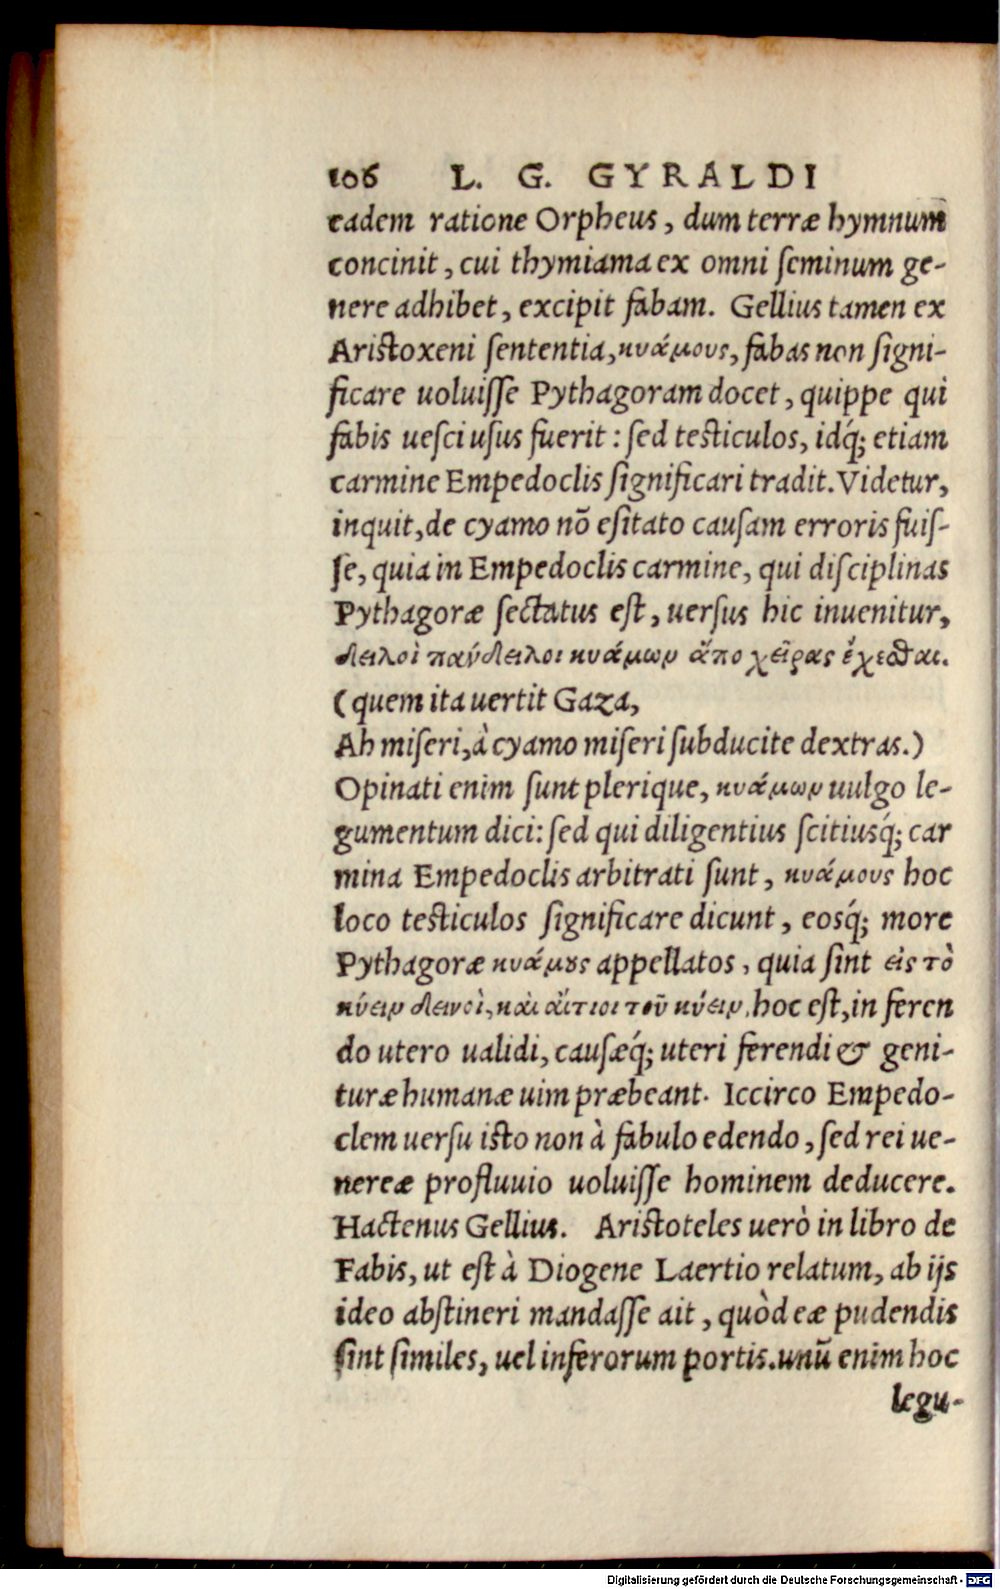 106 L. G. GYRALDI
eadem ratione Orpheus, dum terræ hymnum
concinit, cui thymiama ex omni ſeminum ge-
nere adhibet, excipit fabam. Gellius tamen ex
Ariſtoxeni ſententia, κυάμους, fabas non ſigni-
ficare uoluiſſe Pythagoram docet, quippe qui
fabis ueſci uſus fuerit: ſed teſticulos, idq́; etiam
carmine Empedoclis ſignificari tradit. Videtur,
inquit, de cyamo nõ eſitato cauſam erroris fuiſ-
ſe, quia in Empedoclis carmine, qui diſciplinas
Pythagoræ ſectatus eſt, uerſus hic inuenitur,
δειλοὶ πανδειλοι κυάμων ἄπο χεῖρας ἔχεσθαι.
(quem ita uertit Gaza,
Ah miſeri, à cyamo miſeri ſubducite dextras.)
Opinati enim ſunt plerique, κυάμων uulgo le-
gumentum dici: ſed qui diligentius ſcitiusq́; car
mina Empedoclis arbitrati ſunt, κυάμους hoc
loco teſticulos ſignificare dicunt, eosq́; more
Pythagoræ κυάμȣς appellatos, quia ſint εἰς τὸ
κύειν δεινοὶ, καὶ ἄιτιοι τοῦ κύειν, hoc eſt, in feren
do utero ualidi, cauſæq́; uteri ferendi & geni-
turæ humanæ uim præbeant. Iccirco Empedo-
clem uerſu iſto non à fabulo edendo, ſed rei ue-
nereæ profluuio uoluiſſe hominem deducere.
Hactenus Gellius. Ariſtoteles uerò in libro de
Fabis, ut eſt à Diogene Laertio relatum, ab ijs
ideo abſtineri mandaſſe ait, quòd eæ pudendis
ſint ſimiles, uel inferorum portis. unũ enim hoc
legu-
Digitalisierung gefördert durch die Deutsche Forschungsgemeinschaft - DFG